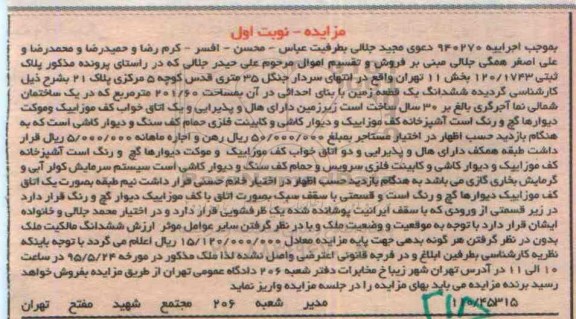 مزایده - نوبت اول
بموجب اجراییه ۹۴۰۲۷۰ دعوی مجید جلالی بطرفیت عباس - محسن - افسر - کرم رضا و حمیدرضا و محمدرضا و
علی اصغر همگی جلالی مبنی بر فروش و تقسیم اموال مرحوم علی حیدر جلالی که در راستای پرونده مذکور پلاک
ثبتی ۱۲۰/۱۷۴۳ بخش ۱۱ تهران واقع در انتهای سردار جنگل ۳۵ متری قدس کوچه ۵ مرکزی پلاک ۲۱ بشرح ذیل
کارشناسی گردیده ششدانگ یک قطعه زمین با بنای احداثی در آن بمساحت ۲۰۱/۶۰ مترمربع که در یک ساختمان
شمالی نما آجرگری بالغ بر ۳۰ سال ساخت است زیرزمین دارای هال و پذیرایی و یک اتاق خواب کف موزاییک وموکت
دیوارها گچ و رنگ است آشپزخانه کف موزاییک و دیوار کاشی و کابینت فلزی حمام کف سنگ و دیوار کاشی است که به
هنگام بازدید حسب اظهار در اختیار مستاجر بمبلغ ۵۰/۰۰۰/۰۰۰ ریال رهن و اجاره ماهانه ۵/۰۰۰/۰۰۰ ریال قرار
داشت طبقه همکف دارای هال و پذیرایی و دو اتاق خواب کف موزاییک و موکت دیوارها گچ و رنگ است آشپزخانه
کف موزاییک و دیوار کاشی و کابینت فلزی سرویس و حمام کف سنگ و دیوار کاشی است سیستم سرمایش کولر آبی و
گرمایش بخاری گازی می باشد به هنگام بازدید حسب اظهار در اختیار خانم حسنی قرار داشت نیم طبقه بصورت یک اتاق
کف موزاییک دیوارها گچ و رنگ است و قسمتی با سقف سبک بصورت اتاق با کف موزاییک دیوار گچ و رنگ قرار دارد
در زیر قسمتی از ورودی که با سقف ایرانیت پوشانده شده یک ظرفشویی قرار دارد و در اختیار محمد جلالی و خانواده
ایشان قرار دارد با توجه به موقعیت و وضعیت ملک و با در نظر گرفتن سایر عوامل موثر ارزش ششدانگ مالکیت ملک
بدون در نظر گرفتن هر گونه بدهی جهت پایه مزایده معادل ۱۵/۱۲۰/۰۰۰/۰۰۰ ریال اعلام می گردد با توجه باینکه
نظریه کارشناسی بطرفین ابلاغ و در فرجه قانونی اعتراضی واصل نشده لذا ملک مذکور در مورخه ۹۵/۵/۲۴ در ساعت
۱۰ الی ۱۱ در آدرس تهران شهر زیبا خ مخابرات دفتر شعبه ۲۰۶ دادگاه عمومی تهران از طریق مزایده بفروش خواهد
رسید برنده مزایده می باید بهای مزایده را در جلسه مزایده واریز نماید
۱۱۰/۴۵۳۱۵ مدیر شعبه ۲۰۶ مجتمع شهید مفتح تهران